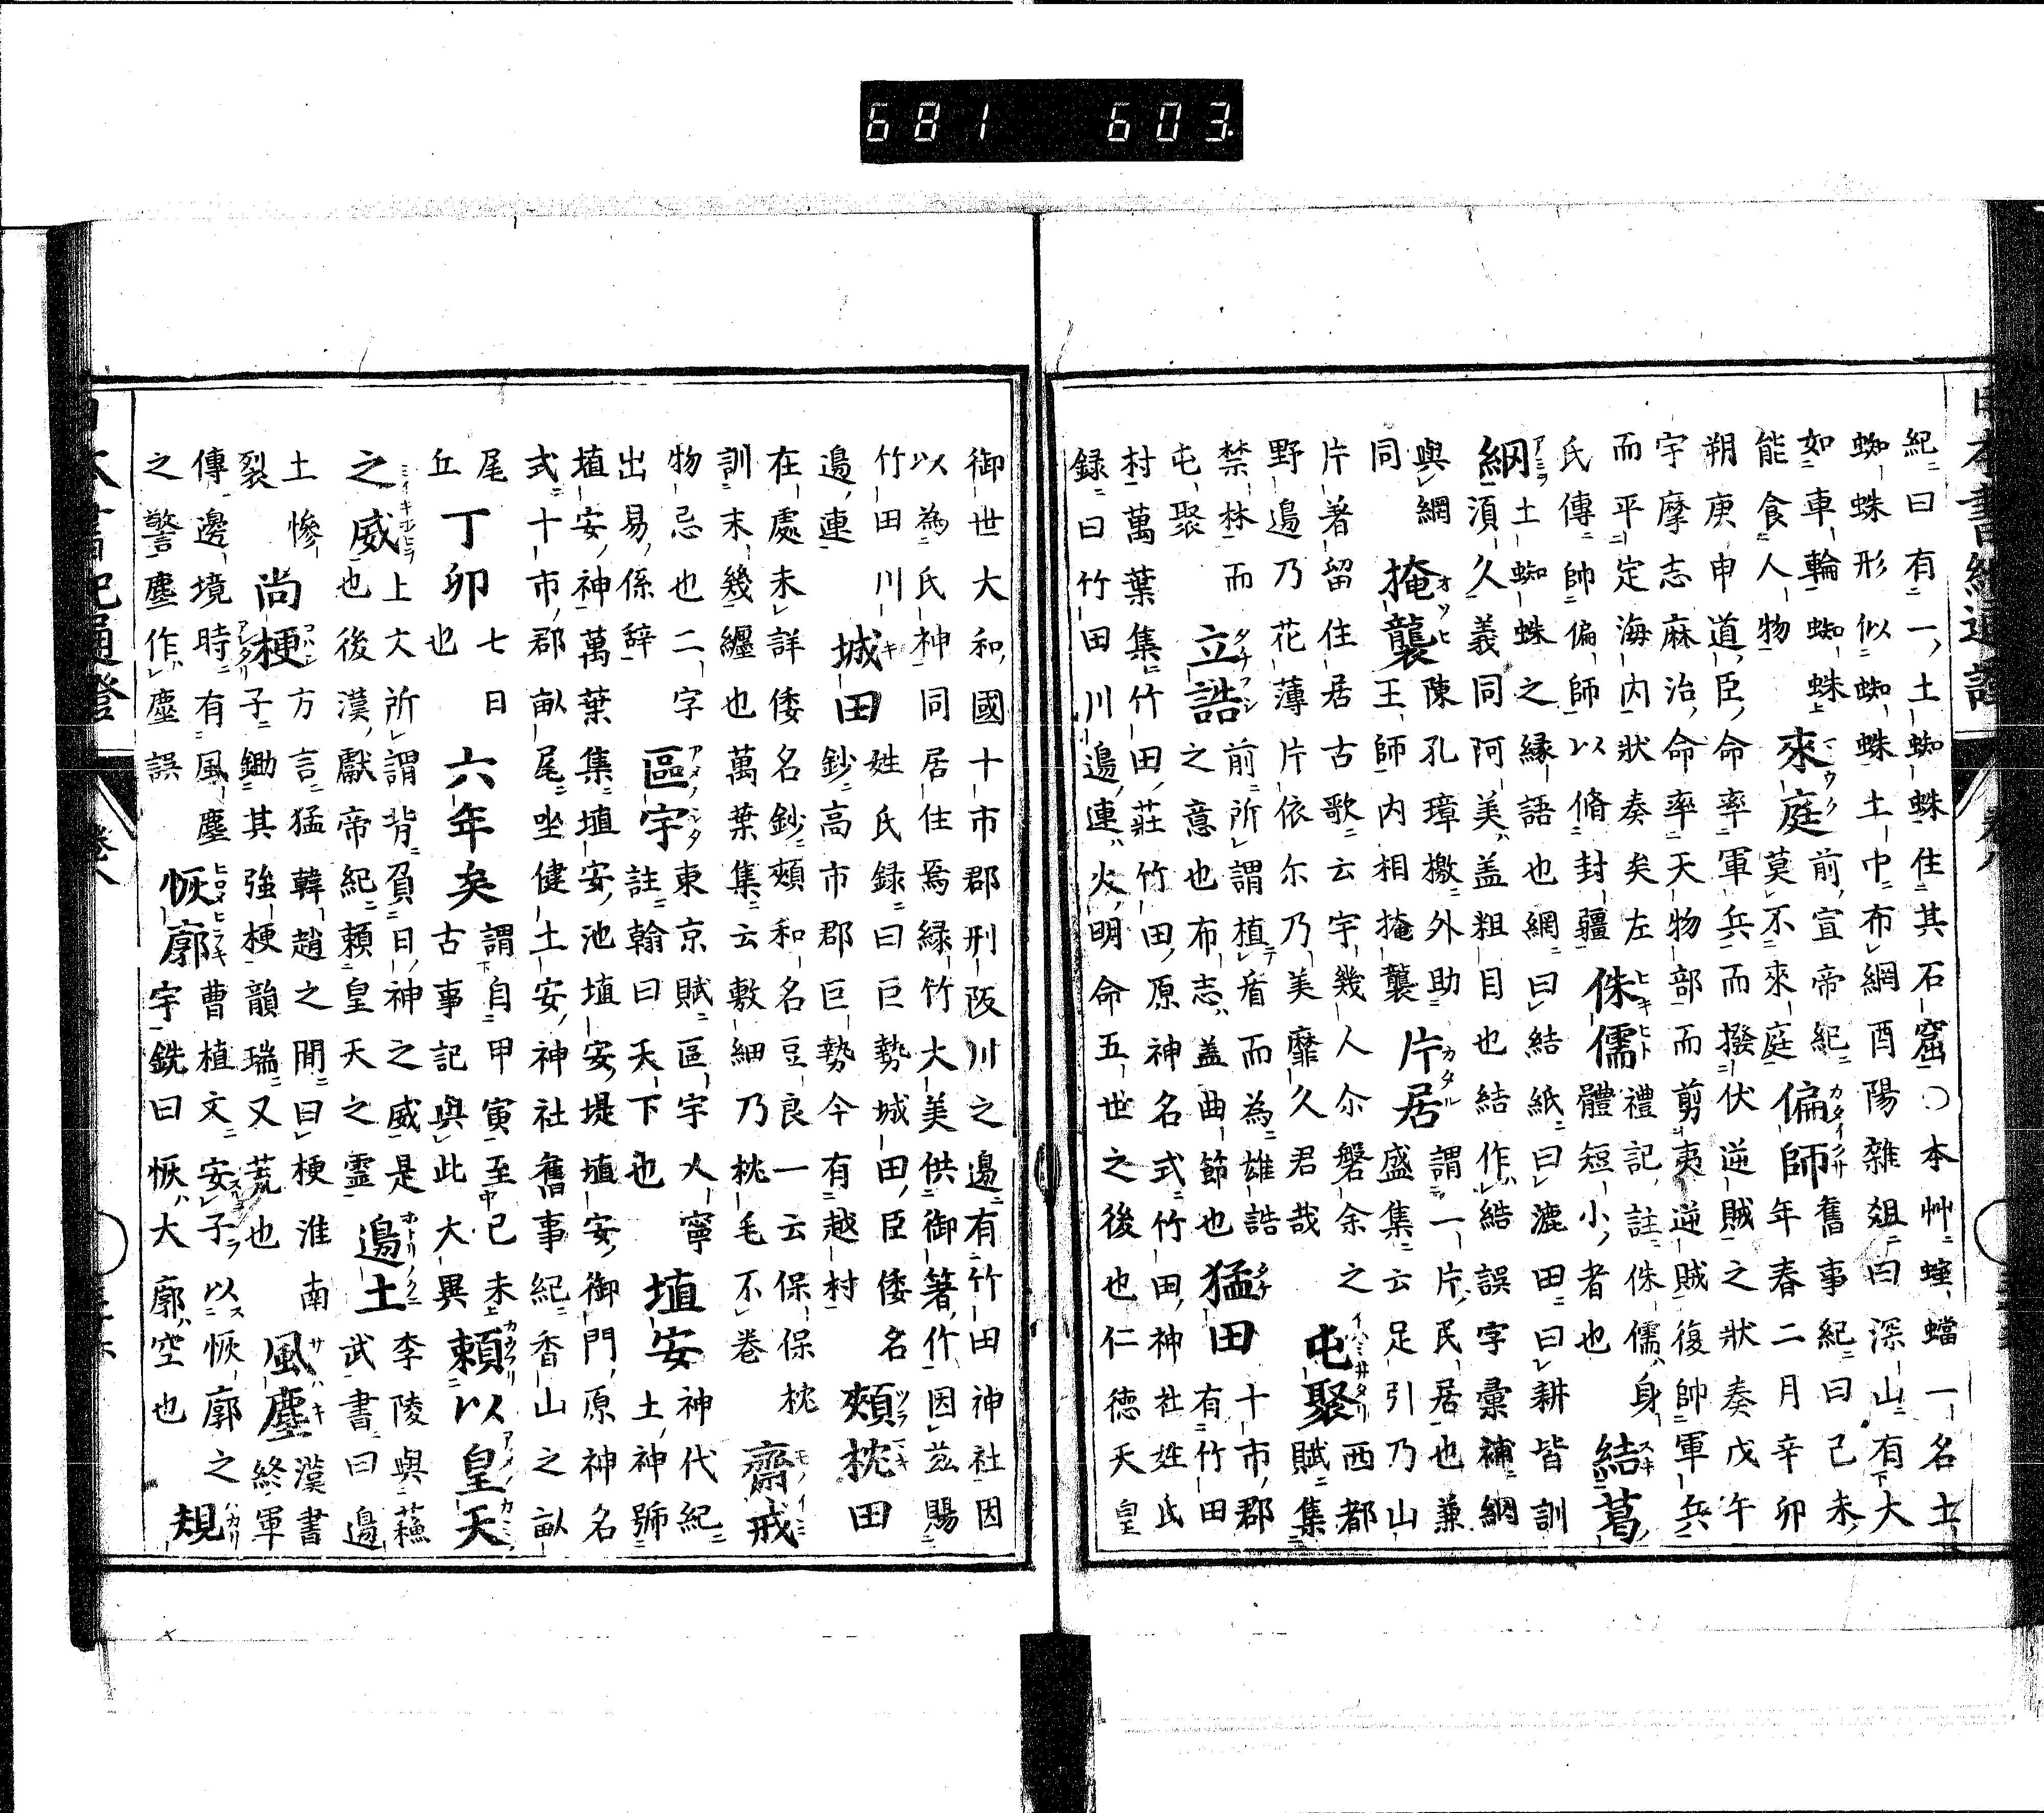 紀曰有一土蜘蛛住其石窟○本艸螲蟷一名土
蜘蛛形似蜘蛛土中布網酉陽雜俎曰深山有大
如車輪蜘蛛
能食人物
來庭
前宣帝紀
莫不來庭
偏師
舊事紀曰己未
年春二月辛卯
朔庚申道臣命率軍兵而撥伏逆賊之狀奏戊午
宇摩志麻治命率天物部而剪夷逆賊復帥軍兵
而平定海内狀奏矣左
氏傳帥偏師以脩封疆
侏儒
禮記註侏儒身
體短小者也
結葛
網
土蜘蛛之縁語也網曰結紙曰漉田曰耕皆訓
湏久義同阿美盖粗目也結作結誤字彙補網
與網
同
掩襲
陳孔璋檄外助
王師内相掩襲
片居
謂一片民居也兼
盛集云足引乃山
片著留住居古歌云宇幾人尒磐余之
野邉乃花薄片依尓乃美靡久君哉
屯聚
西都
賦集
禁林而
屯聚
立誥
前所謂植盾而為雄誥
之意也布志盖曲節也
猛田
十市郡
有竹田
村萬葉集竹田莊竹田原神名式竹田神社姓氏
録曰竹田川邉連火明命五世之後也仁徳天皇
御世大和國十市郡刑阪川之邉有竹田神社因
以為氏神同居住焉緑竹大美供御箸竹因茲賜
竹田川
邉連
城田
姓氏録曰巨勢城田臣倭名
鈔高市郡巨勢今有越村
頰枕田
在處未詳倭名鈔頰和名豆良一云保保枕
訓末幾纒也萬葉集云敷細乃枕毛不卷
齋戒
物忌也二字
出易係辞
區宇
東京賦區宇人寧
註翰曰天下也
埴安
神代紀
土神號
埴安神萬葉集埴安池埴安堤埴安御門原神名
式十市郡畝尾坐健土安神社舊事紀香山之畝
尾
丘
丁卯
七日
也
六年矣
謂自甲寅至己未
古事記與此大異
頼以皇天
之威
上大所謂背負日神之威是
也後漢獻帝紀頼皇天之霊
邉土
李陵與蘓
武書曰邉
土慘
裂
尚梗
方言猛韓趙之間曰梗淮南
子鋤其強梗韻瑞又荒也
風塵
漢書
終軍
傳邊境時有風塵
之警塵作塵誤
恢廓
曹植文安子以恢廓之
宇銑曰恢大廓空也
規